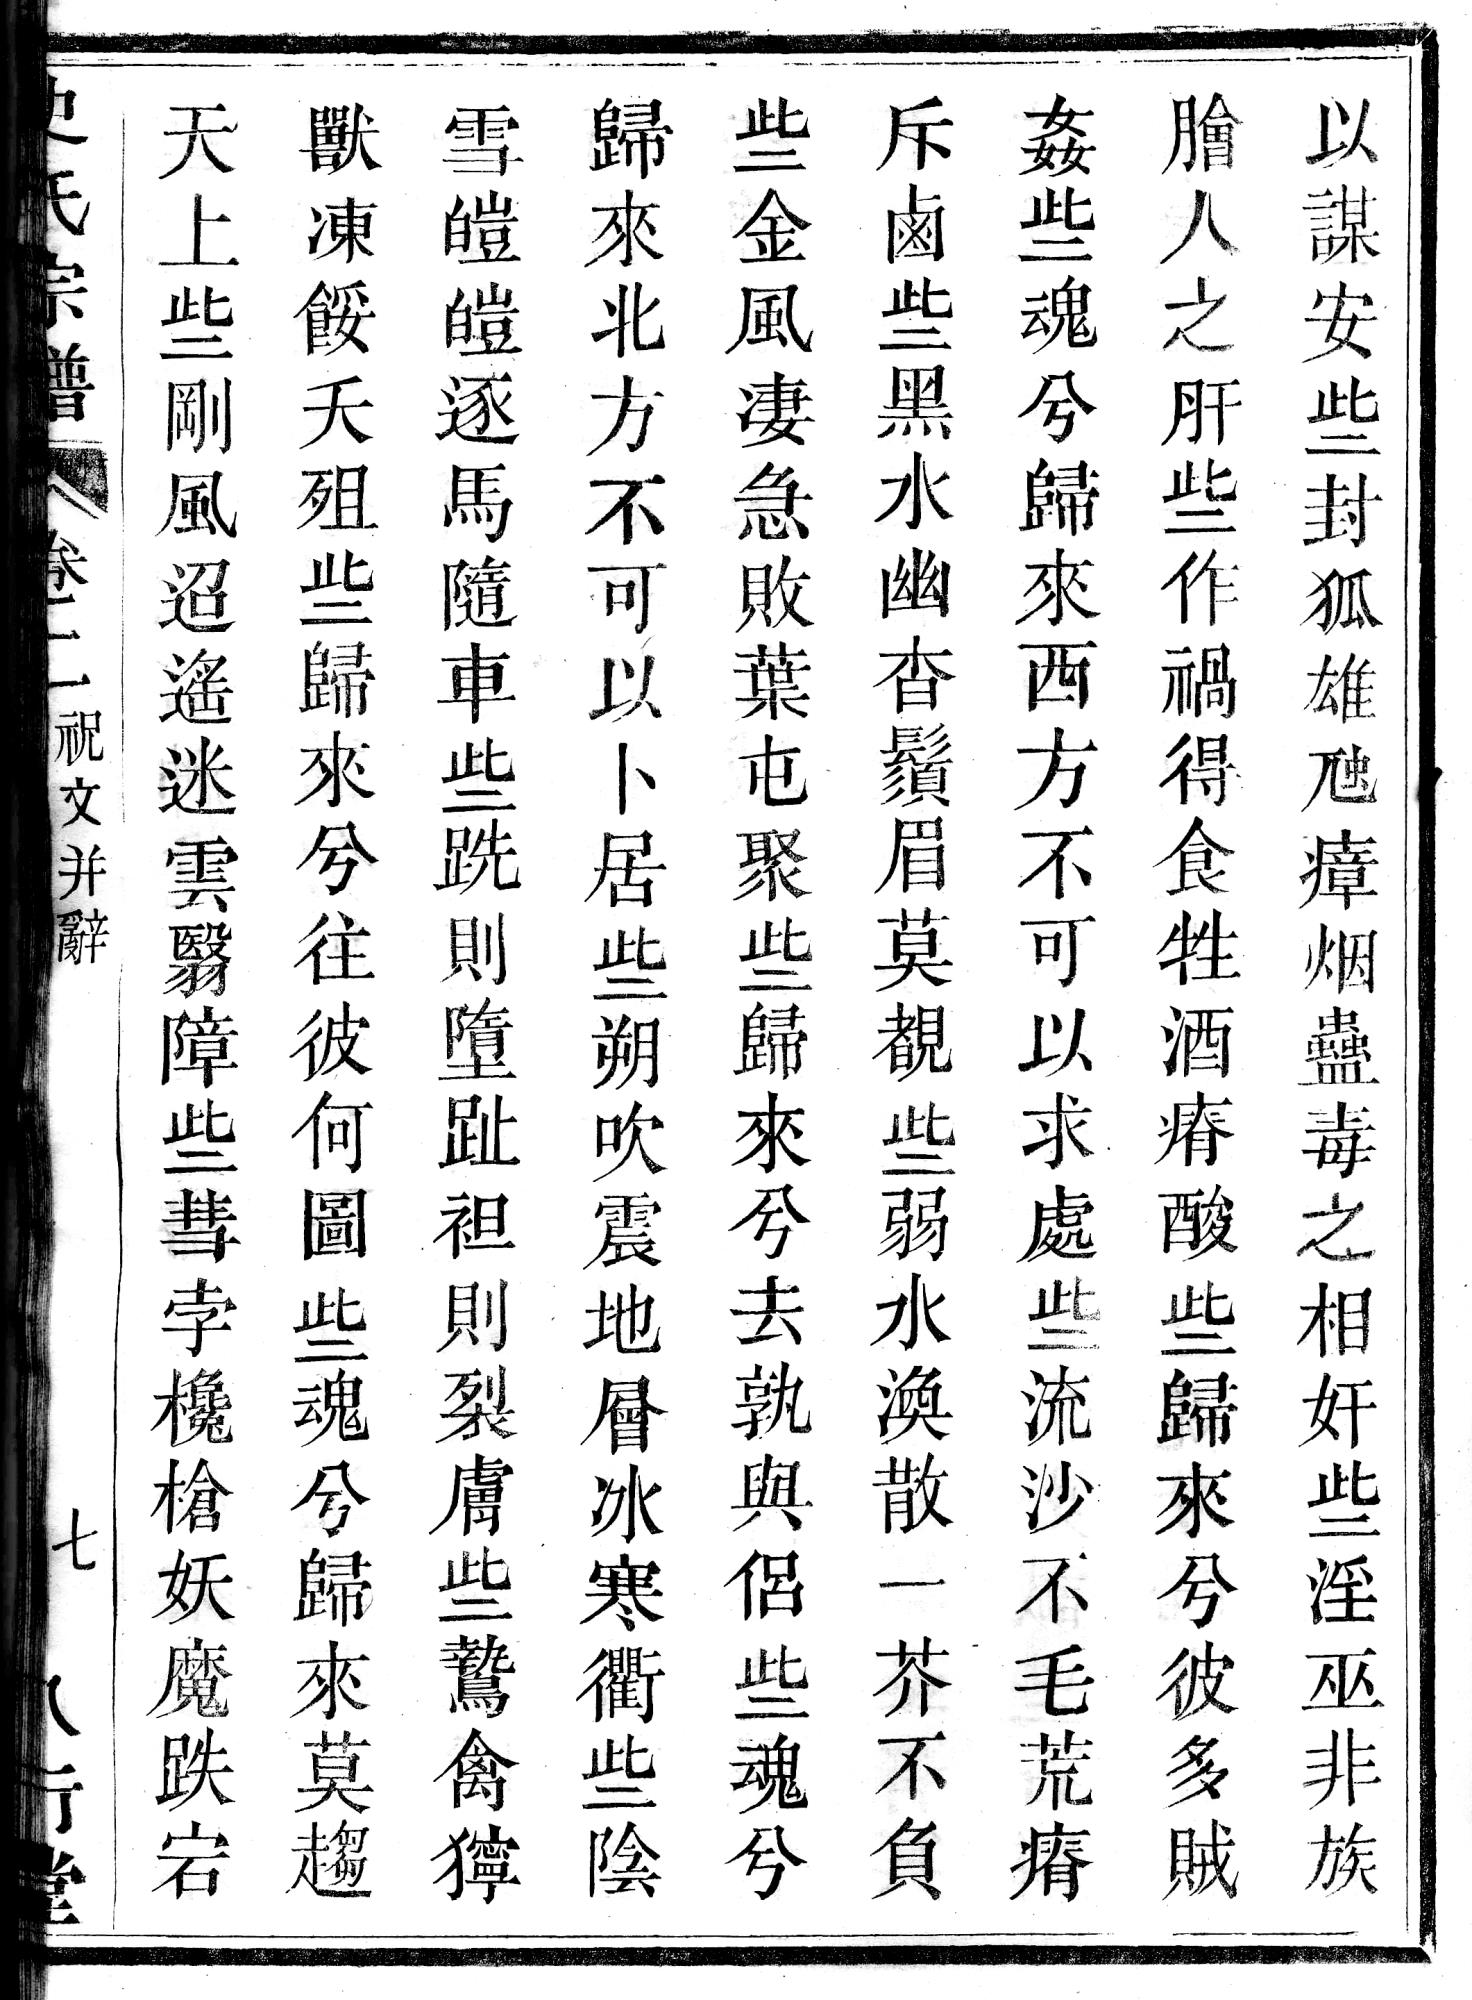 以謀安些封狐雄虺瘴烟蠱毒之相奸些淫巫非族
膾人之肝些作禍得食牲酒瘠酸些歸來兮彼多賊
姦些魂兮歸來西方不可以求處些流沙不毛荒瘠
斥鹵些黑水幽杳鬚眉莫覩些弱水渙散一芥不負
些金風凄急敗葉屯聚些歸來兮去孰與侶些魂兮
歸來北方不可以卜居些朔吹震地層冰寒衢些陰
雪皚皚逐馬隨車些跣則墮趾袒則裂膚些鷙禽獰
獸凍餒夭殂些歸來兮往彼何圖些魂兮歸來莫趨
天上些剛風迢遙迷雲翳障些彗孛欃槍妖魔跌宕
史氏宗譜 卷二 祝文并辭 七 八行堂